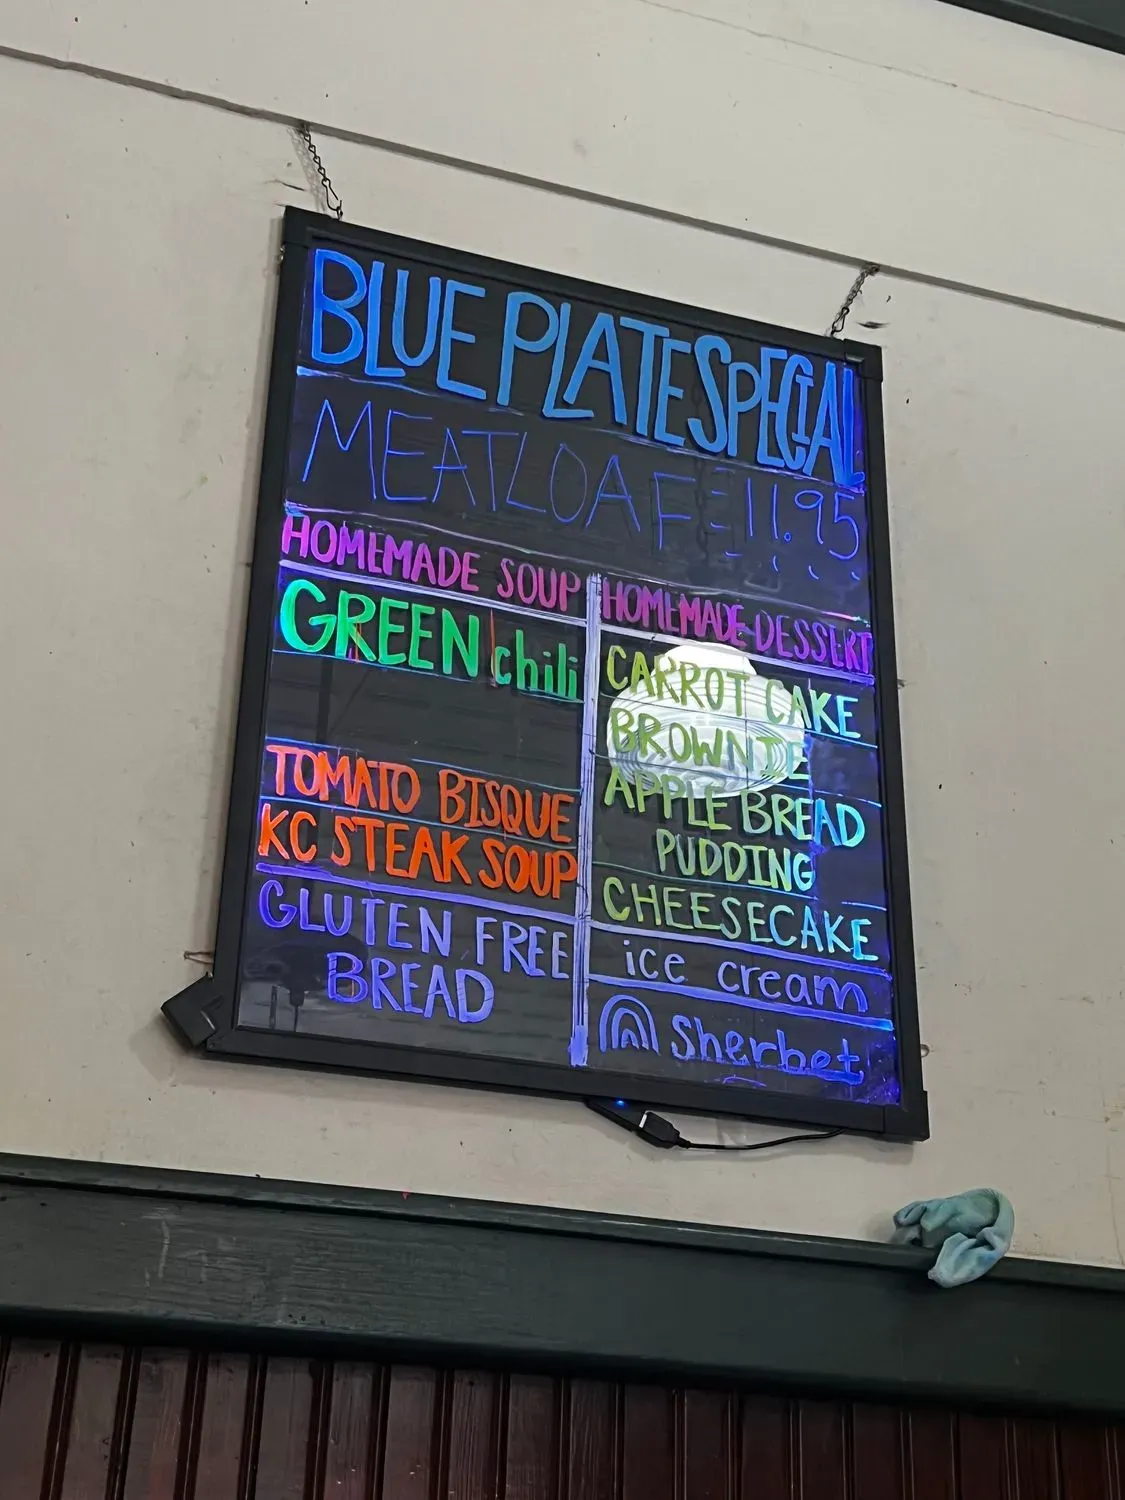 BLUE PLATE SPECIAL
MEATLOAF 11.95
HOMEMADE SOUP
GREEN chili
TOMATO BISQUE
KC STEAK SOUP
GLUTEN FREE
BREAD
HOMEMADE DESSERT
CARROT CAKE
BROWNIE
APPLE BREAD
PUDDING
CHEESECAKE
ice cream
Sherbet